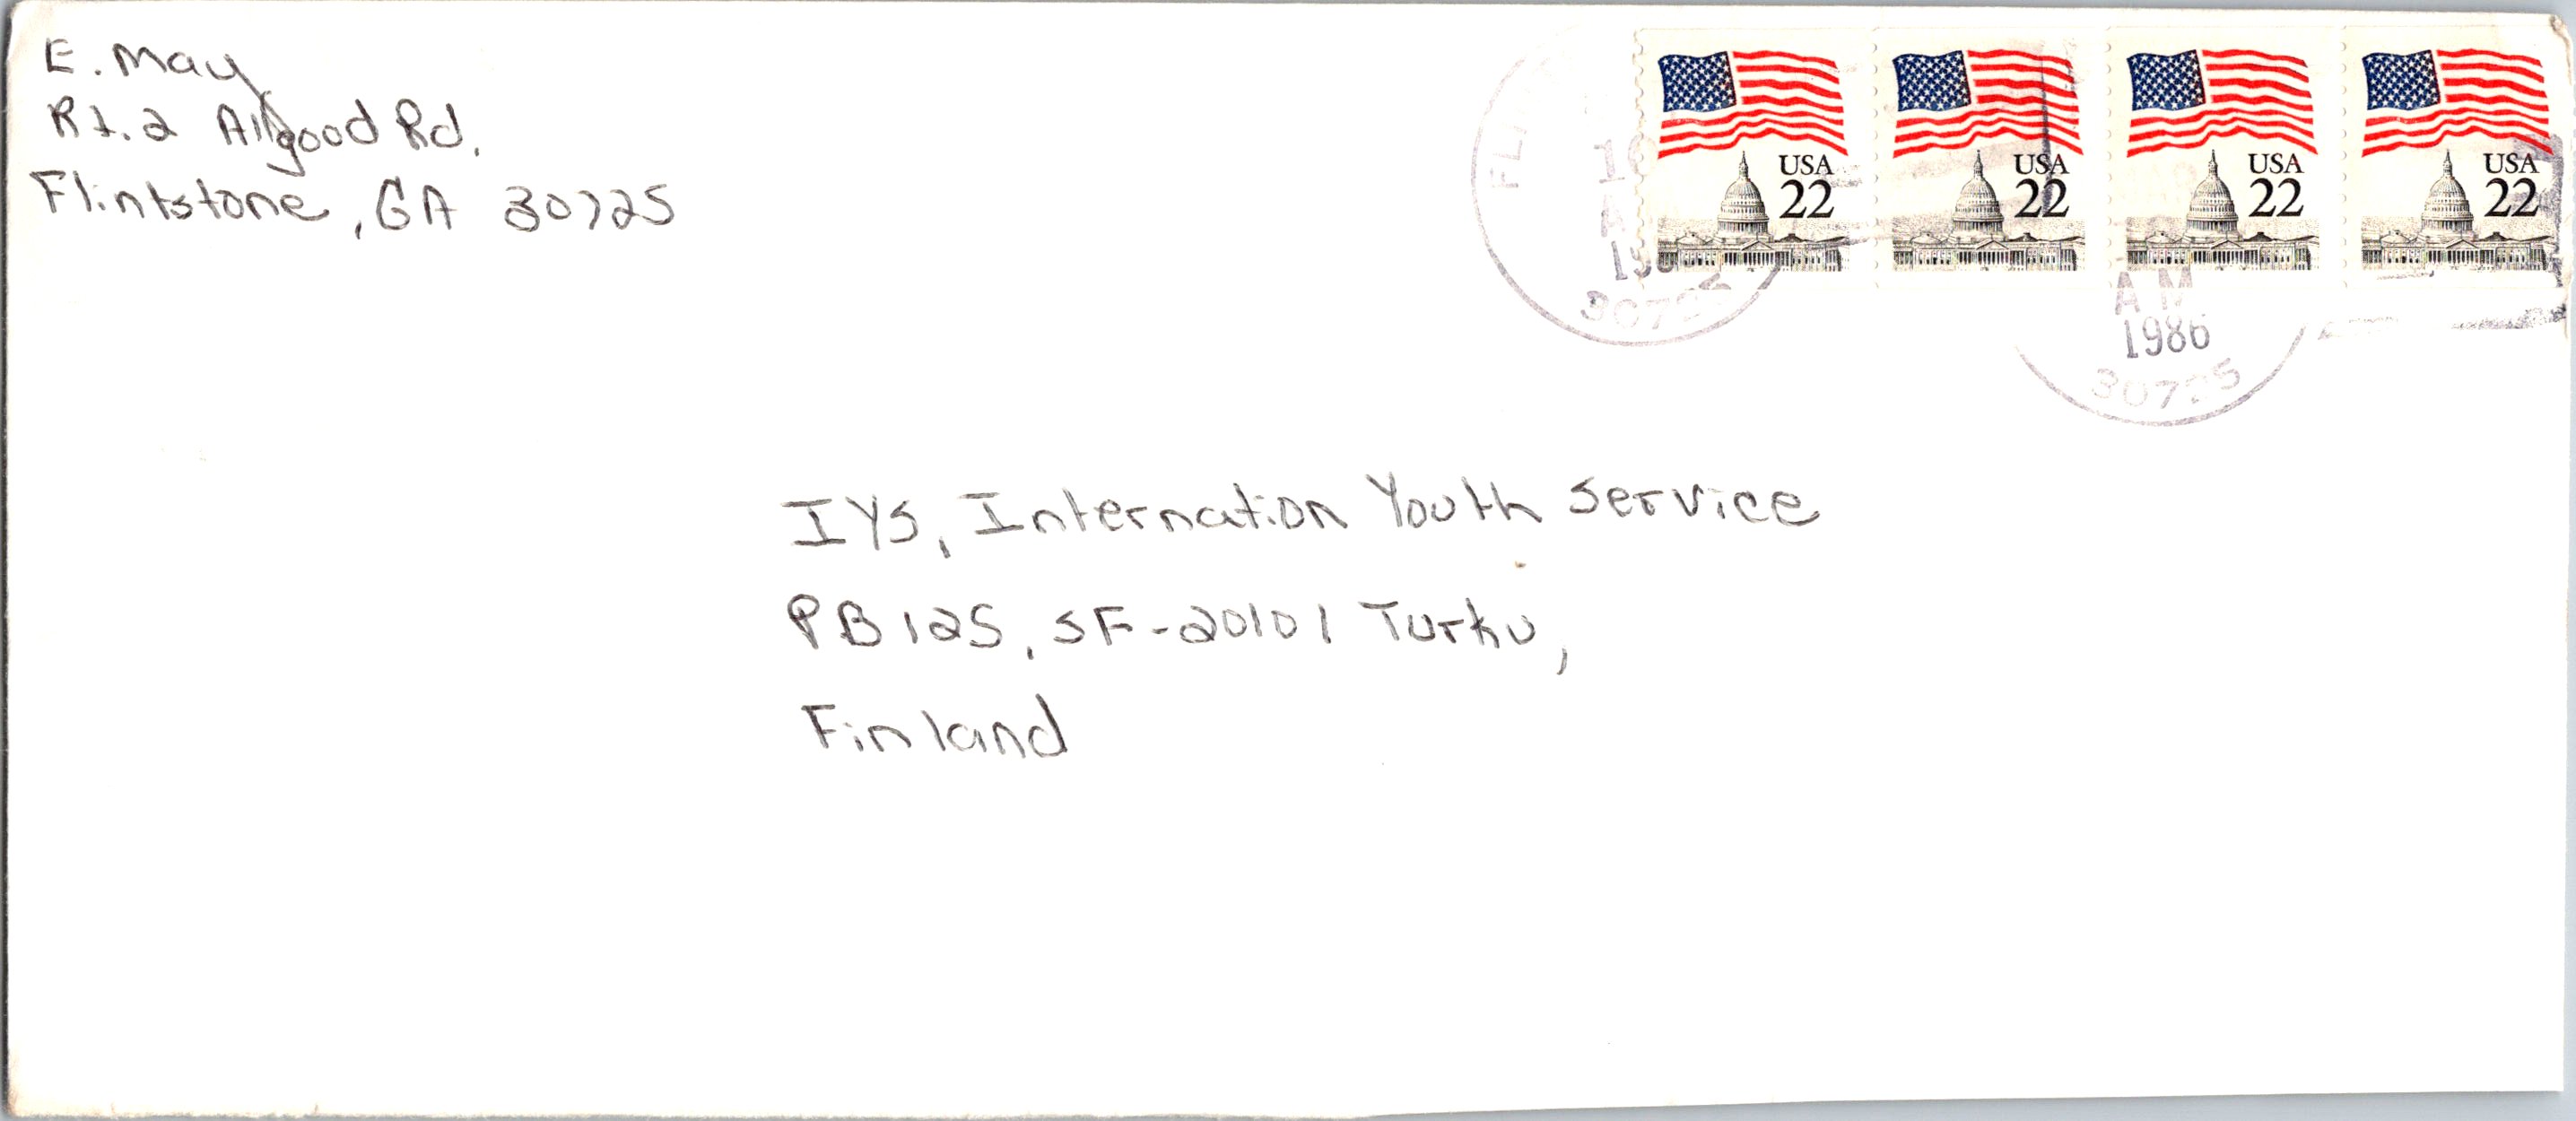 E. May
Rt. 2 Allgood Rd.
Flintstone, GA 30725
USA
22
USA
22
USA
22
USA
22
30725
AM
1986
30725
IYS, Internation Youth Service
PB 125, SF-20101 Turku,
Finland